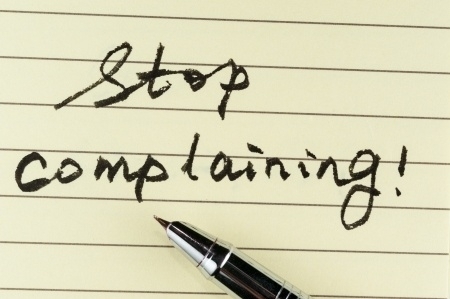 Stop
complaining!